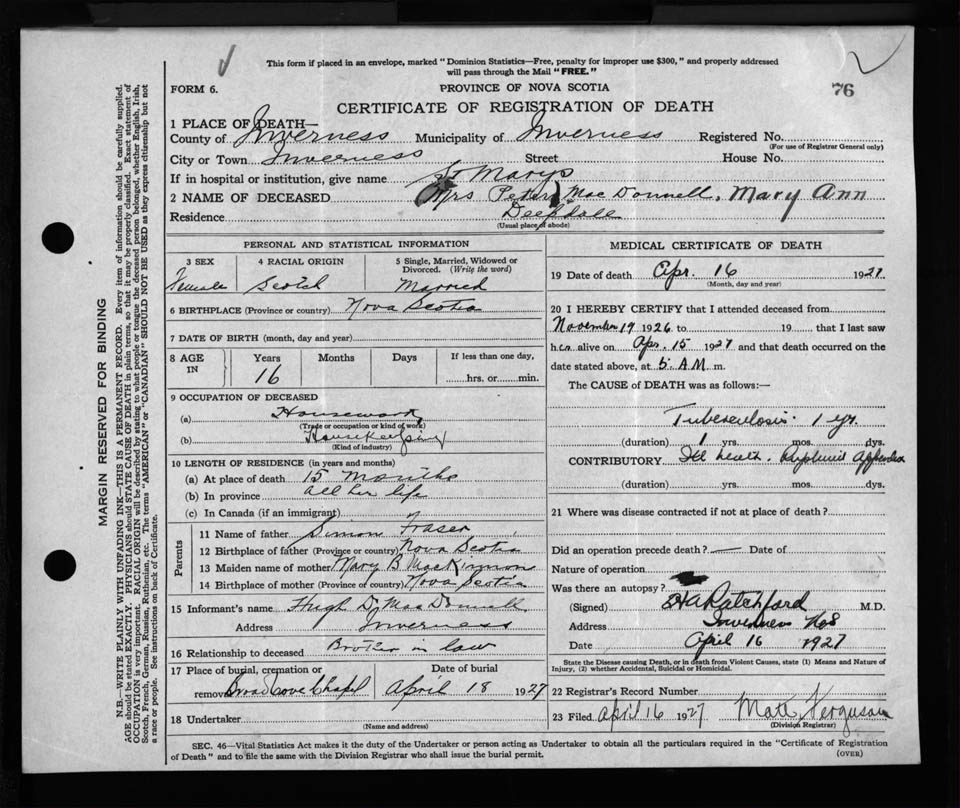 This form if placed in an envelope, marked "Dominion Statistics—Free, penalty for improper use $300," and properly addressed
will pass through the Mail "FREE."
FORM 6.
PROVINCE OF NOVA SCOTIA
76
CERTIFICATE OF REGISTRATION OF DEATH
1 PLACE OF DEATH—
County of Inverness Municipality of Inverness Registered No.
(For use of Registrar General only)
City or Town Inverness Street House No.
If in hospital or institution, give name St Marys
2 NAME OF DECEASED Mrs Peter MacDonnell, Mary Ann
Residence Deepdale
(Usual place of abode)
PERSONAL AND STATISTICAL INFORMATION
3 SEX 4 RACIAL ORIGIN 5 Single, Married, Widowed or
Divorced. (Write the word)
Female Scotch Married
6 BIRTHPLACE (Province or country) Nova Scotia
7 DATE OF BIRTH (month, day and year)
8 AGE IN Years Months Days If less than one day,
16 hrs. or min.
9 OCCUPATION OF DECEASED
(a) Housework
(Trade or occupation or kind of work)
(b) Housekeeping
(Kind of industry)
10 LENGTH OF RESIDENCE (in years and months)
(a) At place of death 15 months
(b) In province all her life
(c) In Canada (if an immigrant)
Parents
11 Name of father Simon Fraser
12 Birthplace of father (Province or country) Nova Scotia
13 Maiden name of mother Mary B MacKinnon
14 Birthplace of mother (Province or country) Nova Scotia
15 Informant's name Hugh D. MacDonnell
Address Inverness
16 Relationship to deceased Brother in law
17 Place of burial, cremation or Date of burial
removal Broad Cove Chapel April 18 1927
18 Undertaker
(Name and address)
MEDICAL CERTIFICATE OF DEATH
19 Date of death Apr. 16 1927
(Month, day and year)
20 I HEREBY CERTIFY that I attended deceased from
November 19 1926 to 19 that I last saw
her alive on Apr. 15 1927 and that death occurred on the
date stated above, at 5 A.M. m.
The CAUSE of DEATH was as follows:—
Tuberculosis 1 yr.
(duration) 1 yrs. mos. dys.
CONTRIBUTORY Ill health. Appendix
(duration) yrs. mos. dys.
21 Where was disease contracted if not at place of death?
Did an operation precede death? — Date of
Nature of operation
Was there an autopsy?
(Signed) Ratchford M.D.
Address Inverness NS
Date April 16 1927
State the Disease causing Death, or in death from Violent Causes, state (1) Means and Nature of
Injury, (2) whether Accidental, Suicidal or Homicidal.
22 Registrar's Record Number
23 Filed April 16 1927 Matt Ferguson
(Division Registrar)
SEC. 46—Vital Statistics Act makes it the duty of the Undertaker or person acting as Undertaker to obtain all the particulars required in the "Certificate of Registration
of Death" and to file the same with the Division Registrar who shall issue the burial permit.
(OVER)
MARGIN RESERVED FOR BINDING
N.B.—WRITE PLAINLY WITH UNFADING INK—THIS IS A PERMANENT RECORD. Every item of information should be carefully supplied.
AGE should be stated EXACTLY. PHYSICIANS should STATE CAUSE OF DEATH in plain terms, so that it may be properly classified. Exact statement of
OCCUPATION is very important. RACIAL ORIGIN will be described by stating to what people or tongue the deceased person belonged, whether English, Irish,
Scotch, French, German, Russian, Ruthenian, etc. The terms "AMERICAN" or "CANADIAN" SHOULD NOT BE USED as they express citizenship but not
a race or people. See instructions on back of Certificate.